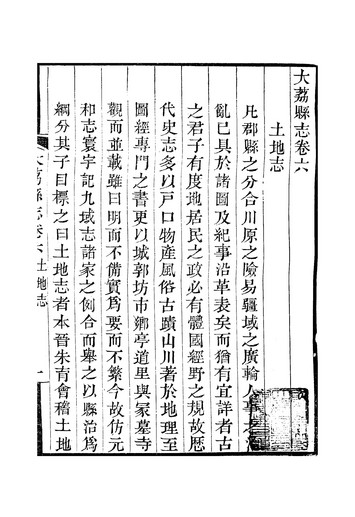 大荔縣志卷六
土地志
凡郡縣之分合川原之險易疆域之廣輪人事之
亂已具於諸圖及紀事沿革表矣而猶有宜詳者古
之君子有度地居民之政必有體國經野之規故歴
代史志多以戸口物產風俗古蹟山川著於地理至
圖經專門之書更以城郭坊市鄉亭道里與冢墓寺
觀而並載雖曰明而不備實爲要而不繁今故仿元
和志寰宇記九域志諸家之例合而舉之以縣治爲
綱分其子目標之曰土地志者本晉朱育會稽土地
大荔縣志 卷六 土地志 一